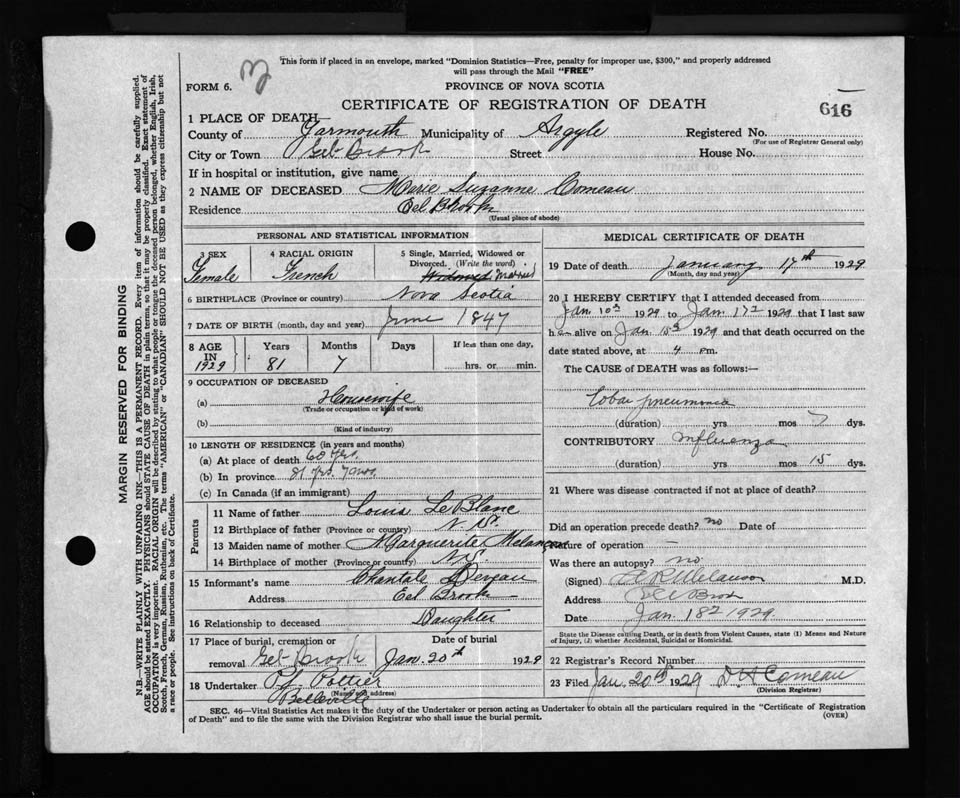 This form if placed in an envelope, marked "Dominion Statistics—Free, penalty for improper use, $300," and properly addressed
will pass through the Mail "FREE"
FORM 6.
PROVINCE OF NOVA SCOTIA
CERTIFICATE OF REGISTRATION OF DEATH
616
1 PLACE OF DEATH
County of Yarmouth Municipality of Argyle Registered No.
(For use of Registrar General only)
City or Town Eel Brook Street House No.
If in hospital or institution, give name
2 NAME OF DECEASED Marie Suzanne Comeau
Residence Eel Brook
(Usual place of abode)
PERSONAL AND STATISTICAL INFORMATION
3 SEX Female
4 RACIAL ORIGIN French
5 Single, Married, Widowed or Divorced. (Write the word) Widowed Married
6 BIRTHPLACE (Province or country) Nova Scotia
7 DATE OF BIRTH (month, day and year) June 1847
8 AGE IN 1929 Years 81 Months 7 Days If less than one day, hrs. or min.
9 OCCUPATION OF DECEASED
(a) Housewife
(Trade or occupation or kind of work)
(b)
(Kind of industry)
10 LENGTH OF RESIDENCE (in years and months)
(a) At place of death 60 yrs.
(b) In province 81 yrs. 7 mos.
(c) In Canada (if an immigrant)
Parents
11 Name of father Louis LeBlanc
12 Birthplace of father (Province or country) N.S.
13 Maiden name of mother Marguerite Melançon
14 Birthplace of mother (Province or country) N.S.
15 Informant's name Chantale
Address Eel Brook
16 Relationship to deceased Daughter
17 Place of burial, cremation or removal Eel Brook Date of burial Jan. 20th 1929
18 Undertaker Pottier
(Name and address)
Belleville
MEDICAL CERTIFICATE OF DEATH
19 Date of death January 17th 1929
(Month, day and year)
20 I HEREBY CERTIFY that I attended deceased from
Jan 10th 1929 to Jan. 17th 1929 that I last saw
her alive on Jan 15th 1929 and that death occurred on the
date stated above, at 4 m.
The CAUSE of DEATH was as follows:—
Lobar pneumonia
(duration) yrs mos 7 dys.
CONTRIBUTORY Influenza
(duration) yrs mos 15 dys.
21 Where was disease contracted if not at place of death?
Did an operation precede death? no Date of
Nature of operation —
Was there an autopsy? no
(Signed) Melanson M.D.
Address Eel Brook
Date Jan. 18th 1929.
State the Disease causing Death, or in death from Violent Causes, state (1) Means and Nature
of Injury, (2) whether Accidental, Suicidal or Homicidal.
22 Registrar's Record Number
23 Filed Jan. 20th 1929 D H Comeau
(Division Registrar)
SEC. 46—Vital Statistics Act makes it the duty of the Undertaker or person acting as Undertaker to obtain all the particulars required in the "Certificate of Registration
of Death" and to file the same with the Division Registrar who shall issue the burial permit.
(OVER)
MARGIN RESERVED FOR BINDING
N.B.—WRITE PLAINLY WITH UNFADING INK—THIS IS A PERMANENT RECORD. Every item of information should be carefully supplied.
AGE should be stated EXACTLY. PHYSICIANS should STATE CAUSE OF DEATH in plain terms, so that it may be properly classified. Exact statement of
OCCUPATION is very important. RACIAL ORIGIN will be described by stating to what people or tongue the deceased person belonged, whether English, Irish,
Scotch, French, German, Russian, Ruthenian, etc. The terms "AMERICAN" or "CANADIAN" SHOULD NOT BE USED as they express citizenship but not
a race or people. See instructions on back of Certificate.